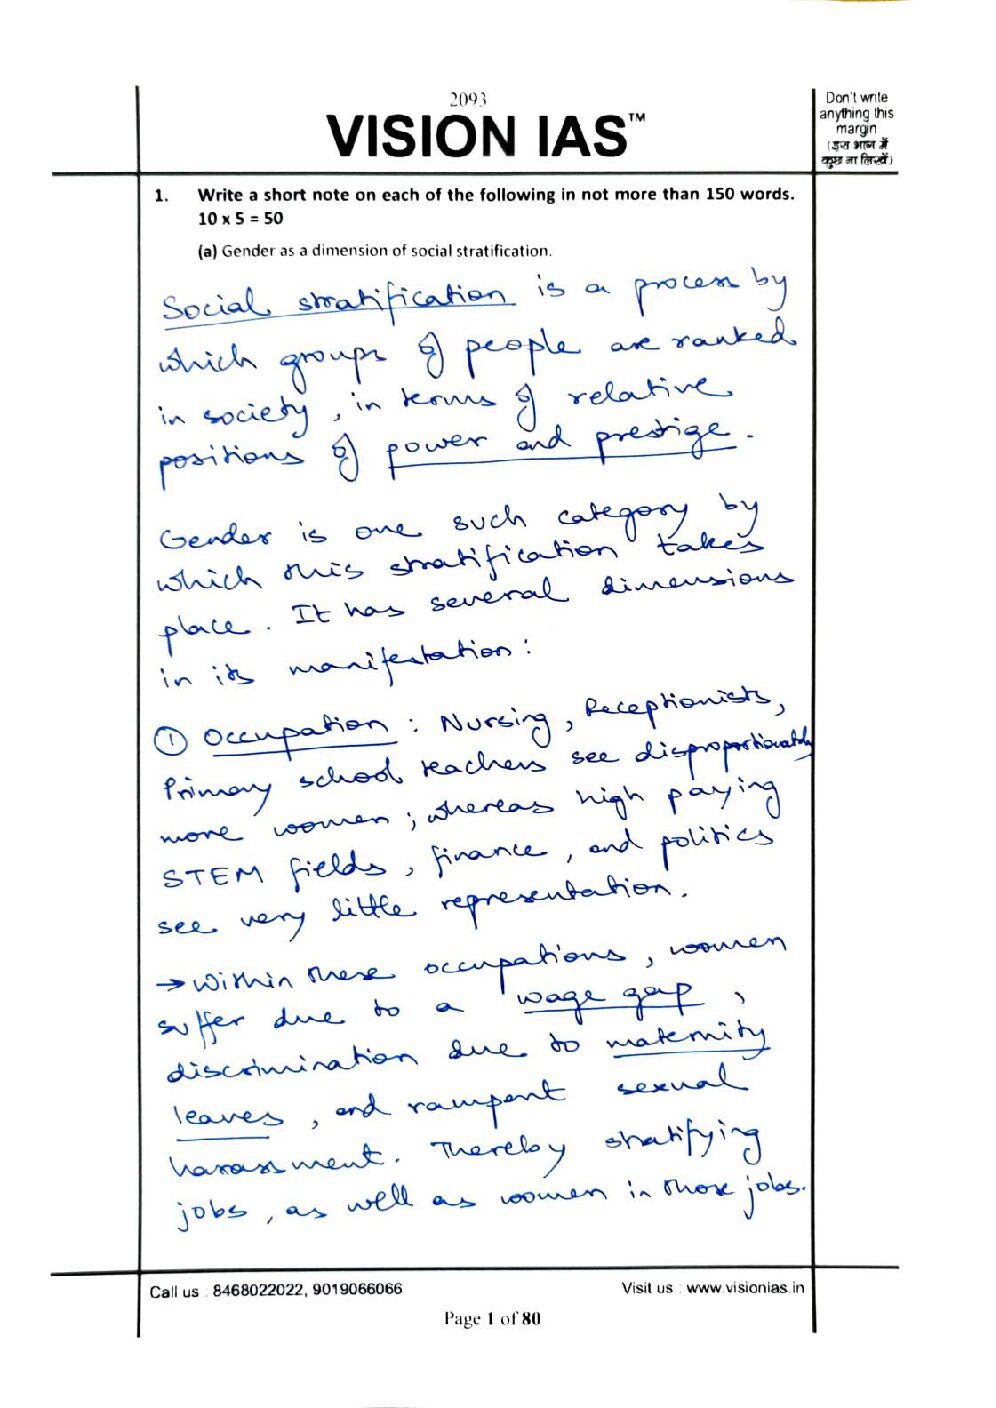 2093
VISION IAS™
Don't write
anything this
margin
(इस भाग में
कुछ ना लिखें)
1. Write a short note on each of the following in not more than 150 words.
10 x 5 = 50
(a) Gender as a dimension of social stratification.
Social stratification is a process by
which groups of people are ranked
in society, in terms of relative
positions of power and prestige.
Gender is one such category by
which this stratification takes
place. It has several dimensions
in its manifestation:
① Occupation: Nursing, Receptionists,
Primary school teachers see disproportionately
more women; whereas high paying
STEM fields, finance, and politics
see very little representation.
→ Within these occupations, women
suffer due to a wage gap,
discrimination due to maternity
leaves, and rampent sexual
harassment. Thereby stratifying
jobs, as well as women in those jobs.
Call us : 8468022022, 9019066066
Visit us : www.visionias.in
Page 1 of 80